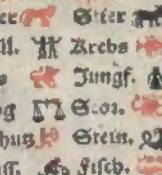 er Stier
ll. Krebs
s Jungf.
g Scor.
hutz Stein.
ss. Fisch.